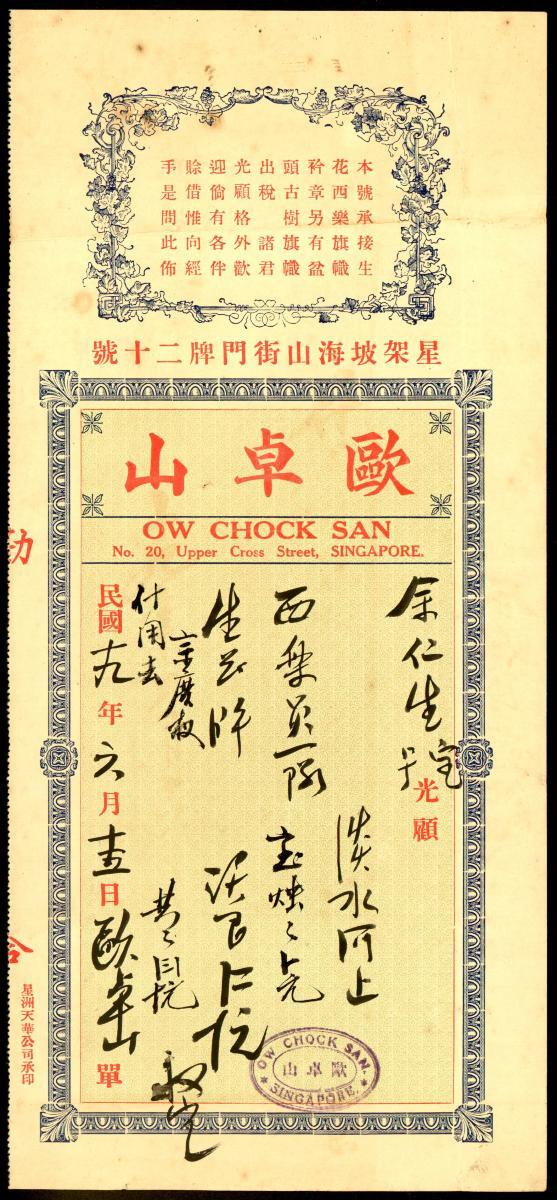 本號承接生
花西樂旗幟
衿章另有盆
頭古樹旗幟
出稅 諸君
光顧格外歡
迎倘有各伴
賒借惟向經
手是問此佈
星架坡海山街門牌二十號
歐卓山
OW CHOCK SAN
No. 20, Upper Cross Street, SINGAPORE.
余仁生宝号光顧
淡水河上
西樂員一隊
生花牌
民國十九年六月十五日歐卓山單
OW CHOCK SAN.
歐卓山
SINGAPORE.
星洲天華公司承印